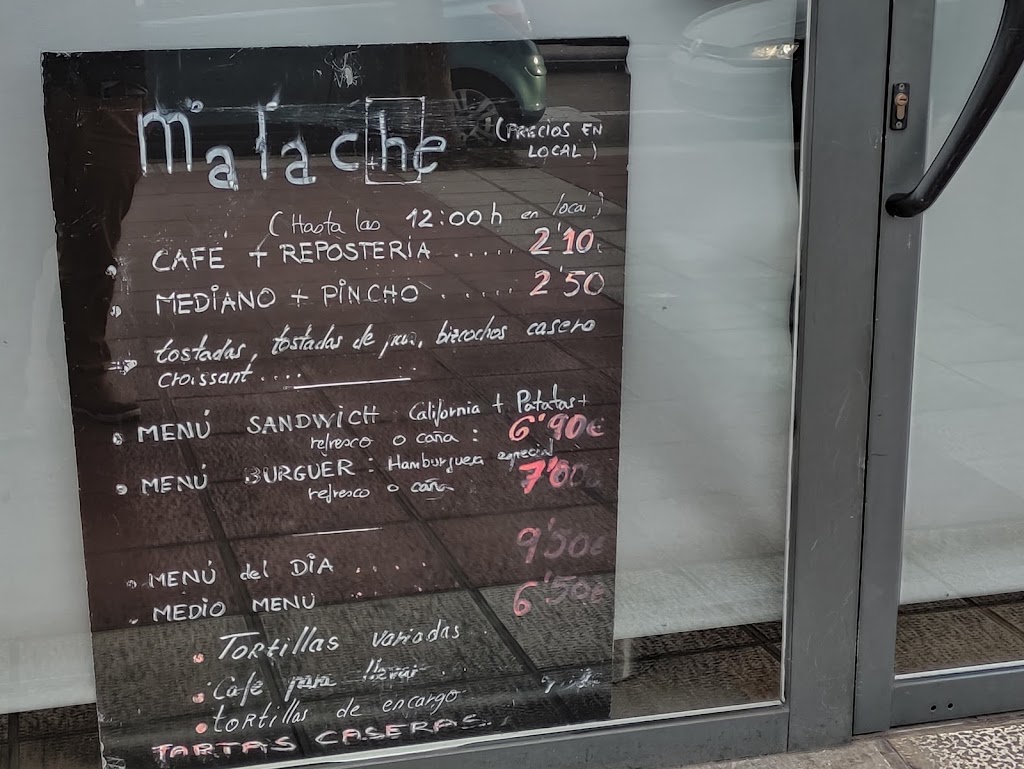 malache
(PRECIOS EN
LOCAL)
(Hasta las 12:00h en local)
CAFÉ + REPOSTERÍA ..... 2'10
MEDIANO + PINCHO ..... 2'50
tostadas, tostadas de pan, bizcochos casero
croissant ....
MENÚ SANDWICH California + Patatas +
refresco o caña : 6'90€
MENÚ BURGUER : Hamburguesa especial
refresco o caña 7'00€
MENÚ del DÍA ..... 9'50€
MEDIO MENÚ 6'50€
TORTillas variadas
Café para llevar
tortillas de encargo
TARTAS CASERAS